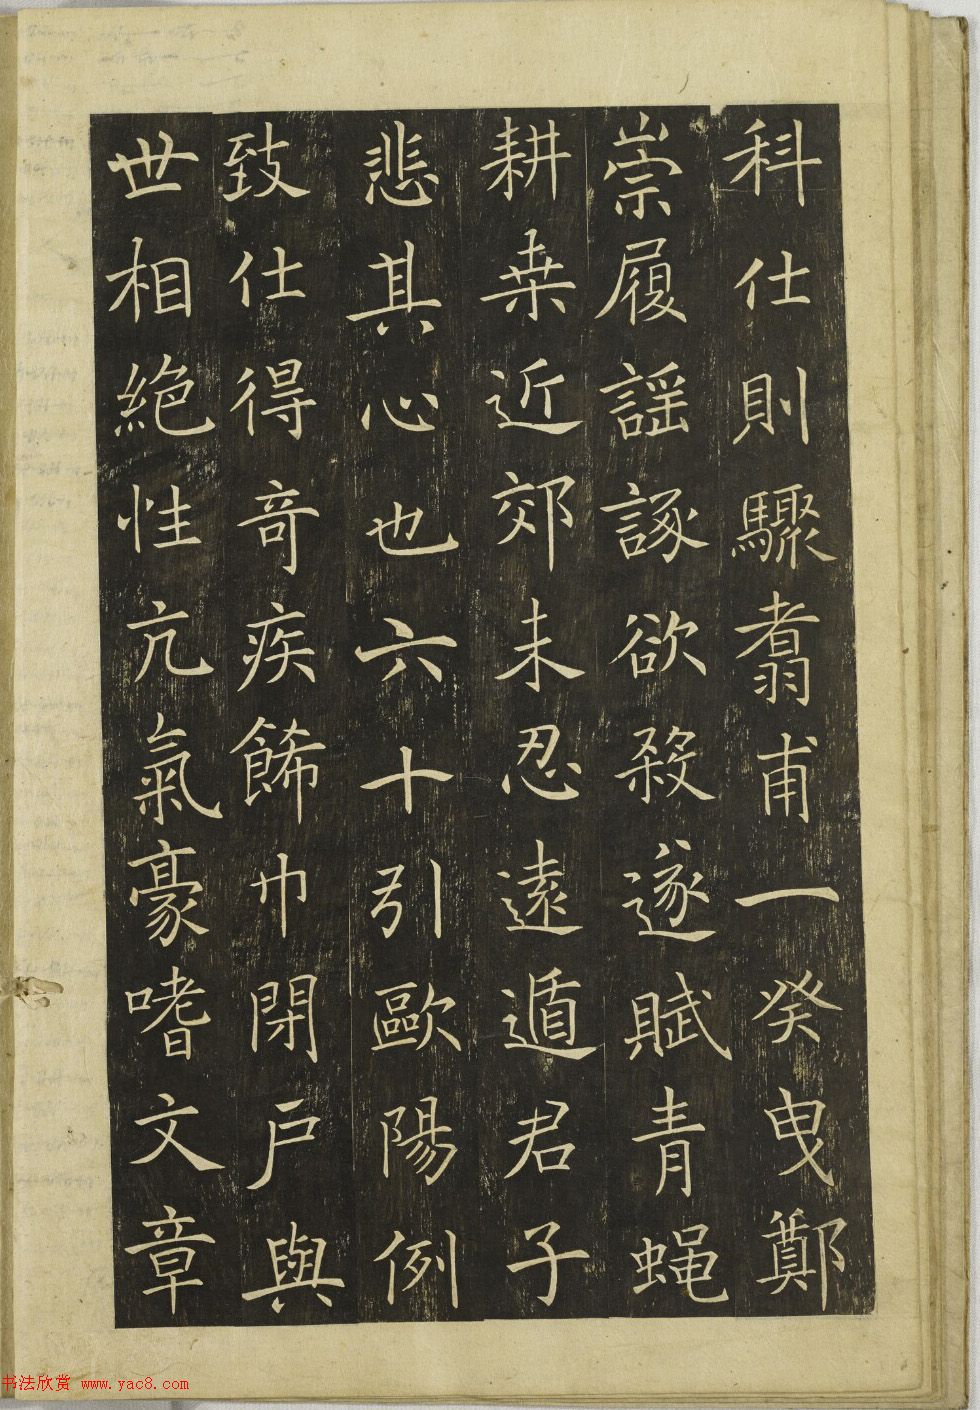 科仕則驟翥甫一癸曳鄭
崇履謡諑欲殺遂賦青蝇
耕桒近郊未忍遠遁君子
悲其心也六十引歐陽例
致仕得奇疾餙巾閇戶與
世相絶性亢氣豪嗜文章
书法欣赏 www.yac8.com